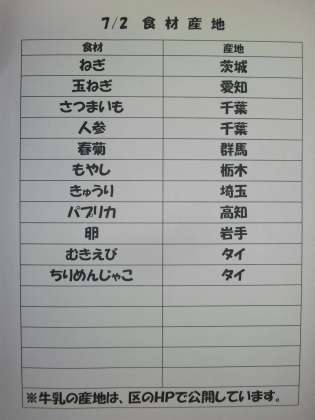 7/2 食材産地
食材 産地
ねぎ 茨城
玉ねぎ 愛知
さつまいも 千葉
人参 千葉
春菊 群馬
もやし 栃木
きゅうり 埼玉
パプリカ 高知
卵 岩手
むきえび タイ
ちりめんじゃこ タイ
※牛乳の産地は、区のHPで公開しています。